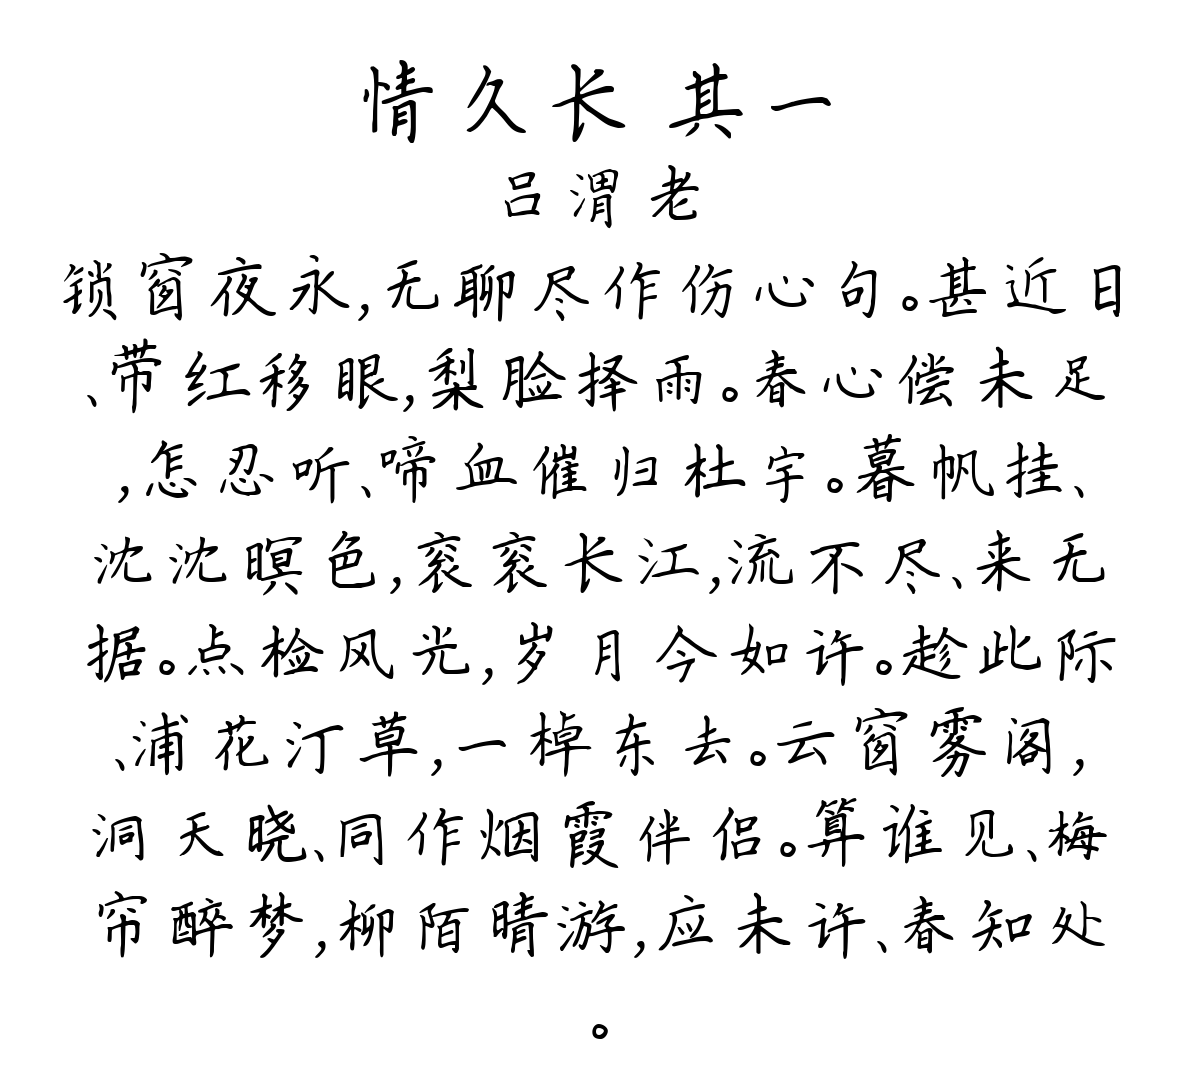 情久长 其一
吕渭老
锁窗夜永,无聊尽作伤心句。甚近日
、带红移眼,梨脸择雨。春心偿未足
,怎忍听、啼血催归杜宇。暮帆挂、
沈沈暝色,衮衮长江,流不尽、来无
据。点检风光,岁月今如许。趁此际
、浦花汀草,一棹东去。云窗雾阁,
洞天晓、同作烟霞伴侣。算谁见、梅
帘醉梦,柳陌晴游,应未许、春知处
。